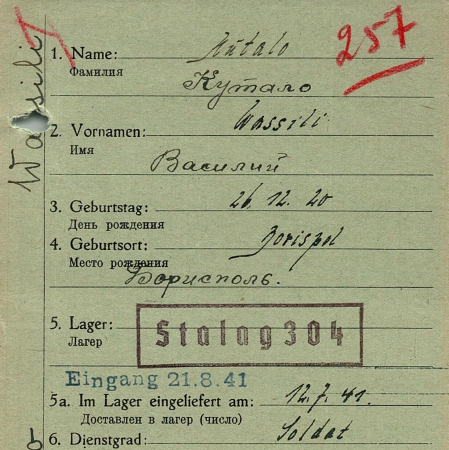 257
Wassili
1. Name: Kutalo
Фамилия
Кутало
2. Vornamen: Wassili
Имя
Василий
3. Geburtstag: 26. 12. 20
День рождения
4. Geburtsort: Borispol
Место рождения
Борисполь.
5. Lager: Stalag 304
Лагер
Eingang 21.8.41
5a. Im Lager eingeliefert am: 12. 7. 41.
Доставлен в лагер (число)
6. Dienstgrad: Soldat